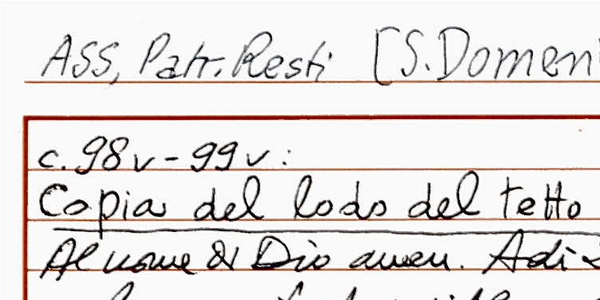 ASS, Patr. Resti [S. Domeni
c. 98v - 99v:
Copia del lodo del tetto
Al nome di Dio amen. Adi